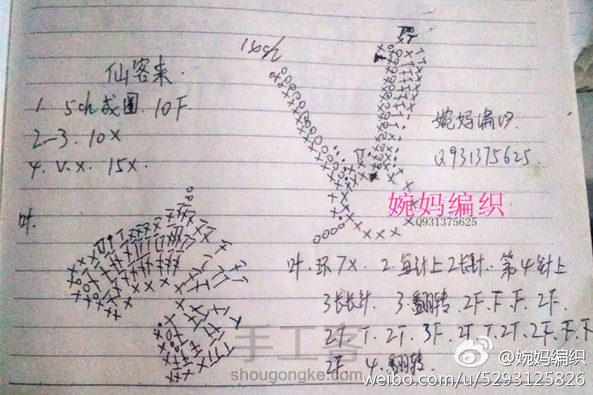 仙客来.
1. 5ch成圈. 10F
2-3. 10X
4. V.X. 15X.
15ch
婉妈编织
Q931375625
婉妈编织
Q931375625
叶.
叶. 环7X. 2. 每针上2长针. 第4针上
3长长针. 3. 翻转. 2F. F. F. 2F.
2T. T. 2T. 3F. 2T. T. 2T. 2F. F. F
2F 4. 翻转.
手工客
shougongke.com
@婉妈编织
weibo.com/u/5293125826